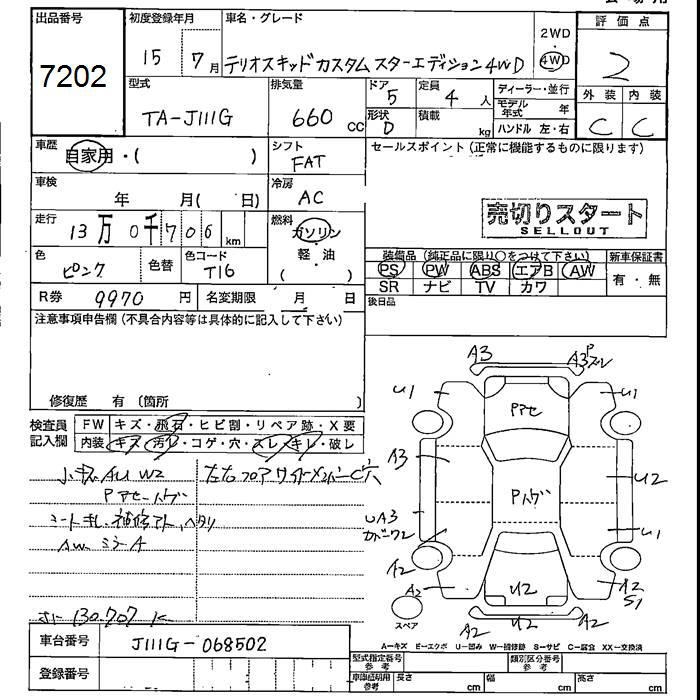 出品番号
7202
初度登録年月
15 7月
車名・グレード
テリオスキッドカスタムスターエディション4WD
2WD
4WD
評価点
2
外装 内装
C C
型式
TA-J111G
排気量
660 cc
ドア
5
形状
D
定員
4 人
積載
kg
ディーラー・並行
モデル年式 年
ハンドル 左・右
車歴
自家用・( )
シフト
FAT
セールスポイント(正常に機能するものに限ります)
車検
年 月( 日)
冷房
AC
走行
13万0千706 km
燃料
ガソリン・軽油
( )
売切りスタート
SELLOUT
色
ピンク
色替
色コード
T16
装備品 (純正品に限り○をつけて下さい)
PS PW ABS エアB AW
SR ナビ TV カワ
新車保証書
有・無
R券 9970 円
名変期限 月 日
後日品
注意事項申告欄(不具合内容等は具体的に記入して下さい)
修復歴 有 (箇所 )
検査員記入欄
FW キズ・飛石・ヒビ割・リペア跡・X要
内装 キズ・汚レ・コゲ・穴・スレ・キレ・破レ
小キズAU W2
Pアセーハゲ
シートキレ、補修アト、ヘタリ
AW ミラーA
左右フロアサイドメンバーC穴
130.707 K
A3
A3
U1
U1
Pアセ
A3
Pハゲ
U2
UA3
カバーワレ
U1
A2
A2
U2
A2
S1
A2
U2
A2
スペア
A−キズ E−エクボ U−凹み W−補修跡 S−サビ C−腐食 XX−交換済
車台番号
J111G-068502
登録番号
型式指定番号 参考
類別区分番号 参考
車庫証明用 参考
長さ cm
幅 cm
高さ cm